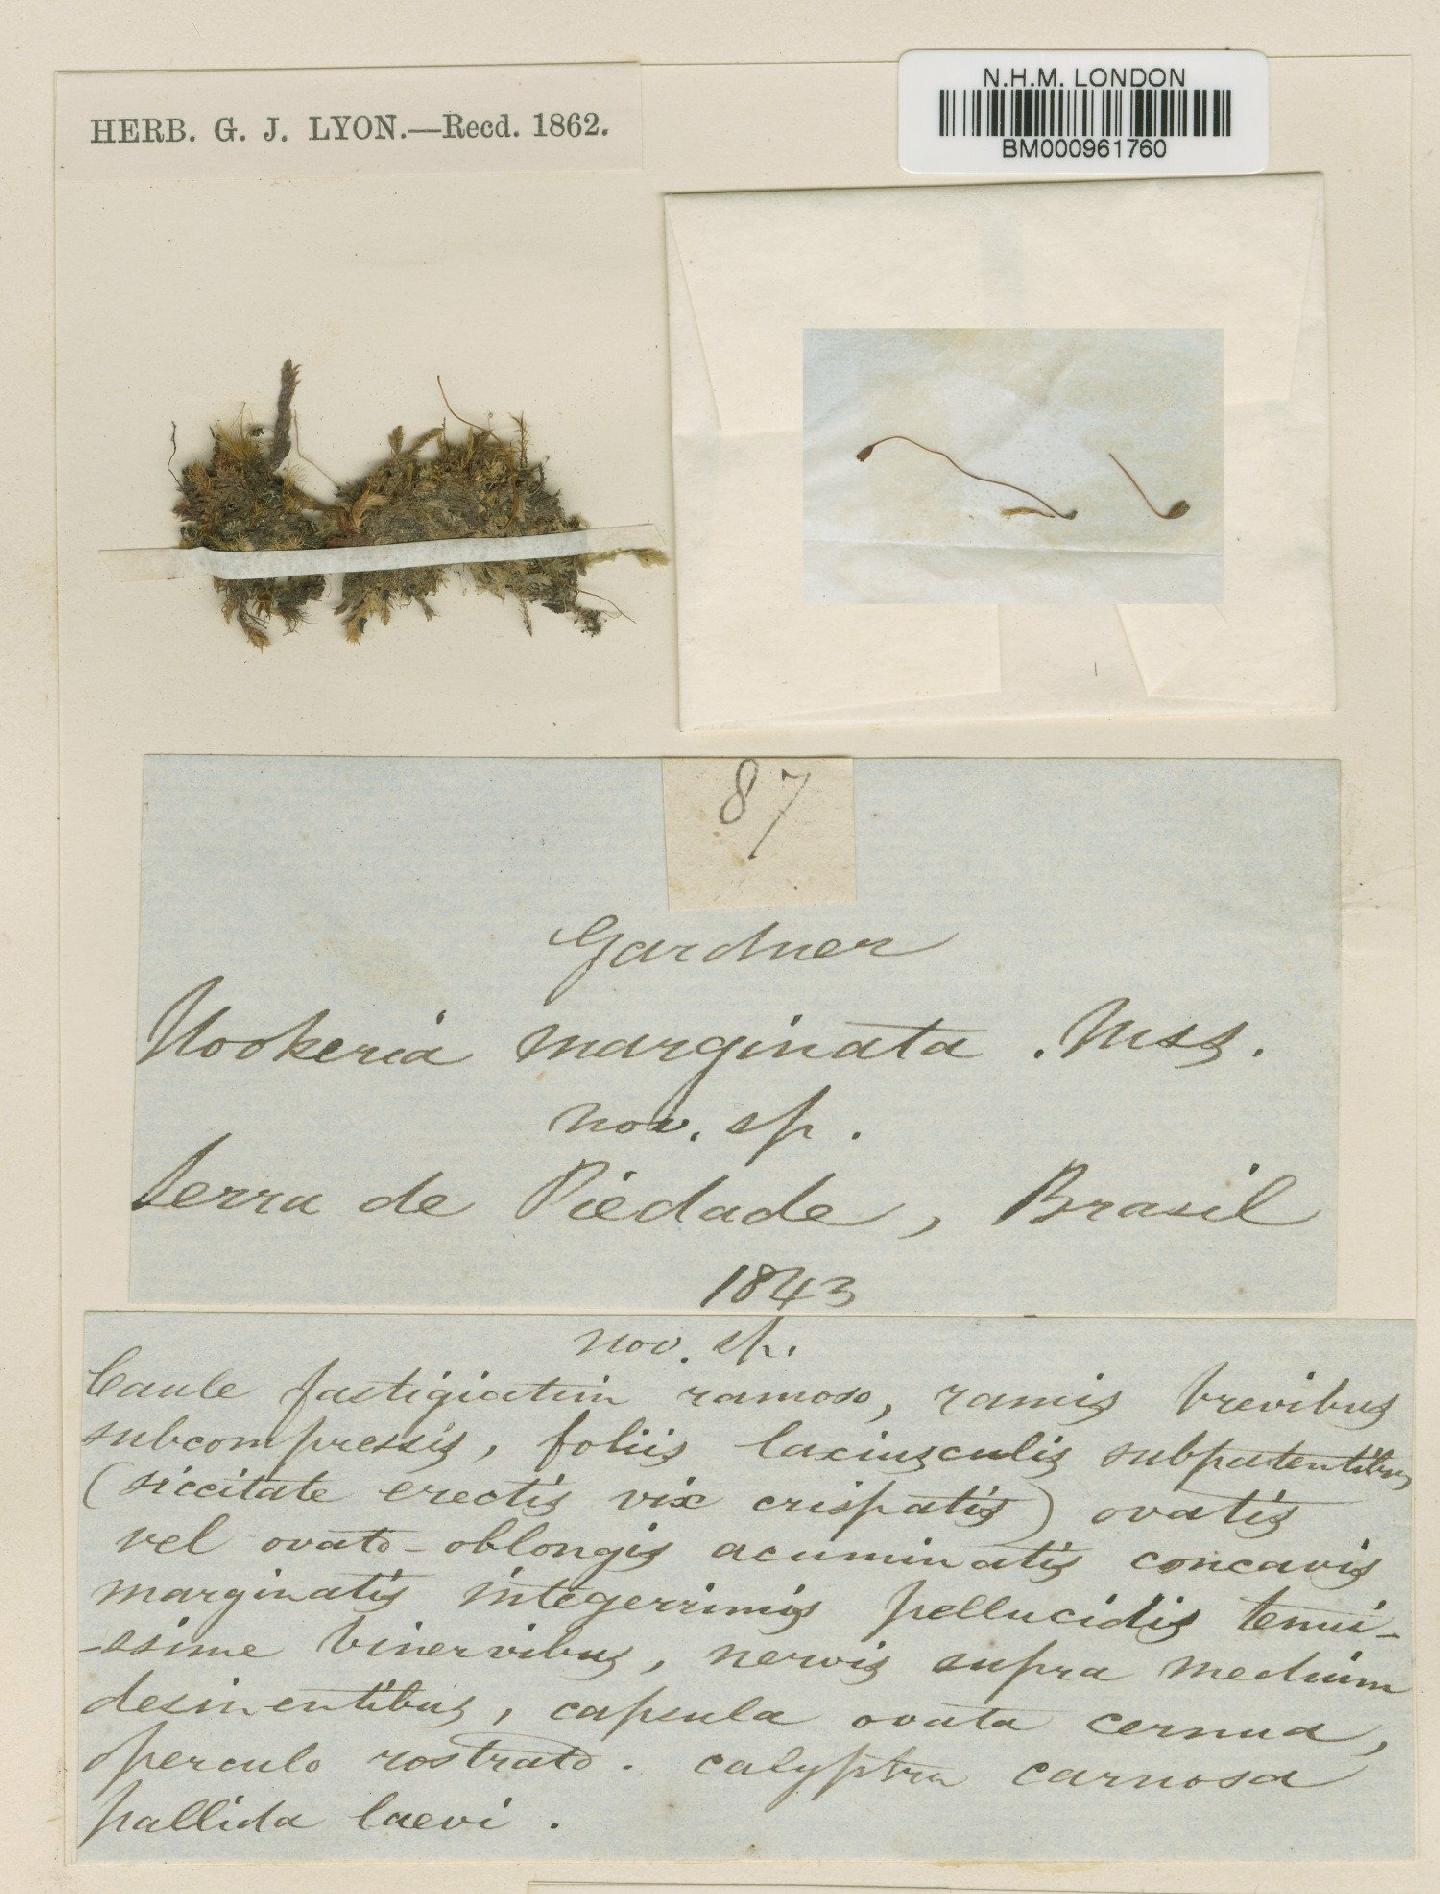 HERB. G. J. LYON.—Recd. 1862.
N.H.M. LONDON
BM000961760
87
Gardner
Hookeria marginata . Mss.
nov. sp.
Serra de Piedade, Brasil
1843
nov. sp.
Caule fastigiatim ramoso, ramis brevibus
subcompressis, foliis laxiusculis subpatentibus
(siccitate erectis vix crispatis) ovatis
vel ovato-oblongis acuminatis concavis
marginatis integerrimis pellucidis tenui-
-ssime binervibus, nervis supra medium
desinentibus, capsula ovata cernua,
operculo rostrato. calyptra carnosa
pallida laevi.